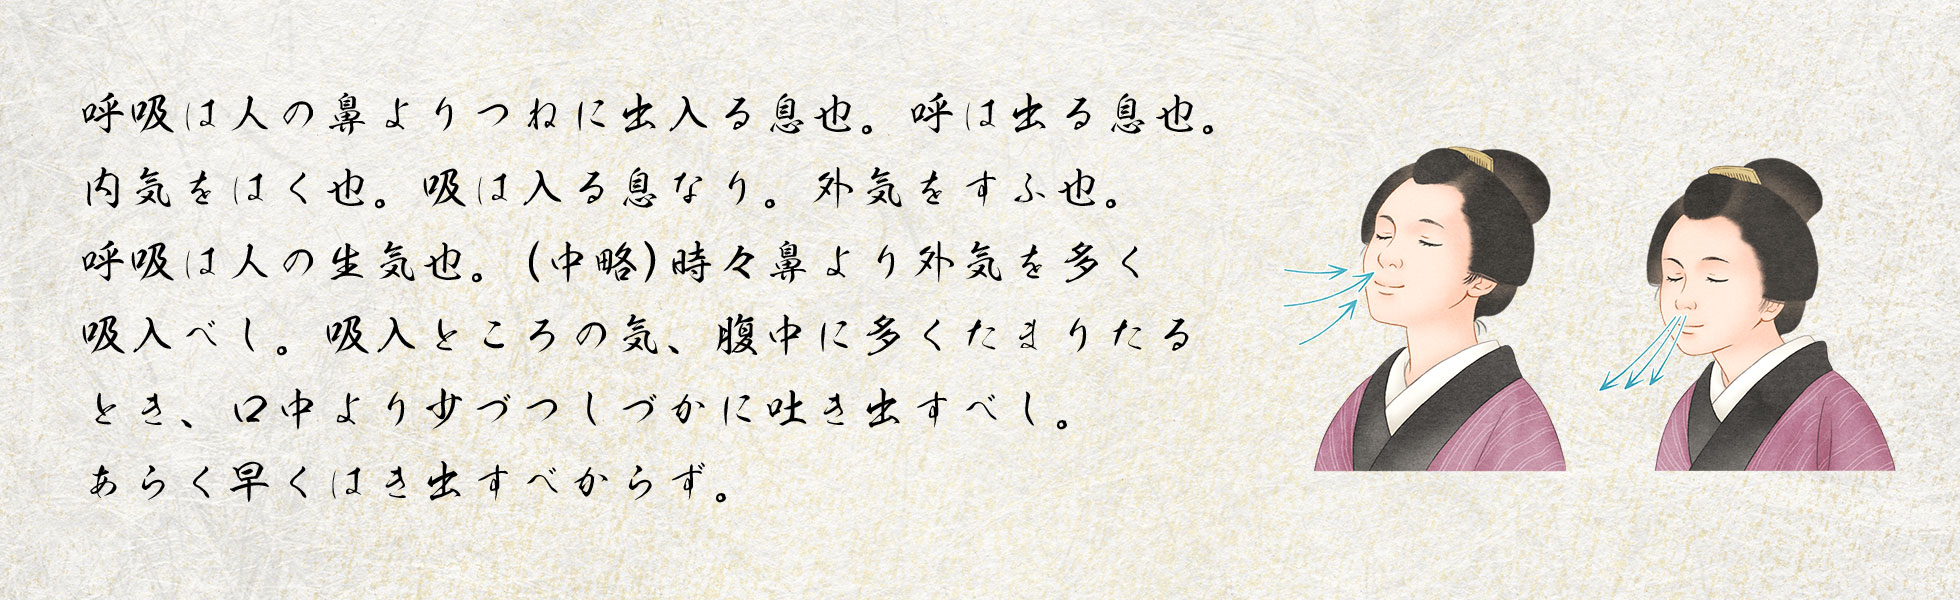 呼吸は人の鼻よりつねに出入る息也。呼は出る息也。
内気をはく也。吸は入る息なり。外気をすふ也。
呼吸は人の生気也。(中略)時々鼻より外気を多く
吸入べし。吸入ところの気、腹中に多くたまりたる
とき、口中より少づつしづかに吐き出すべし。
あらく早くはき出すべからず。